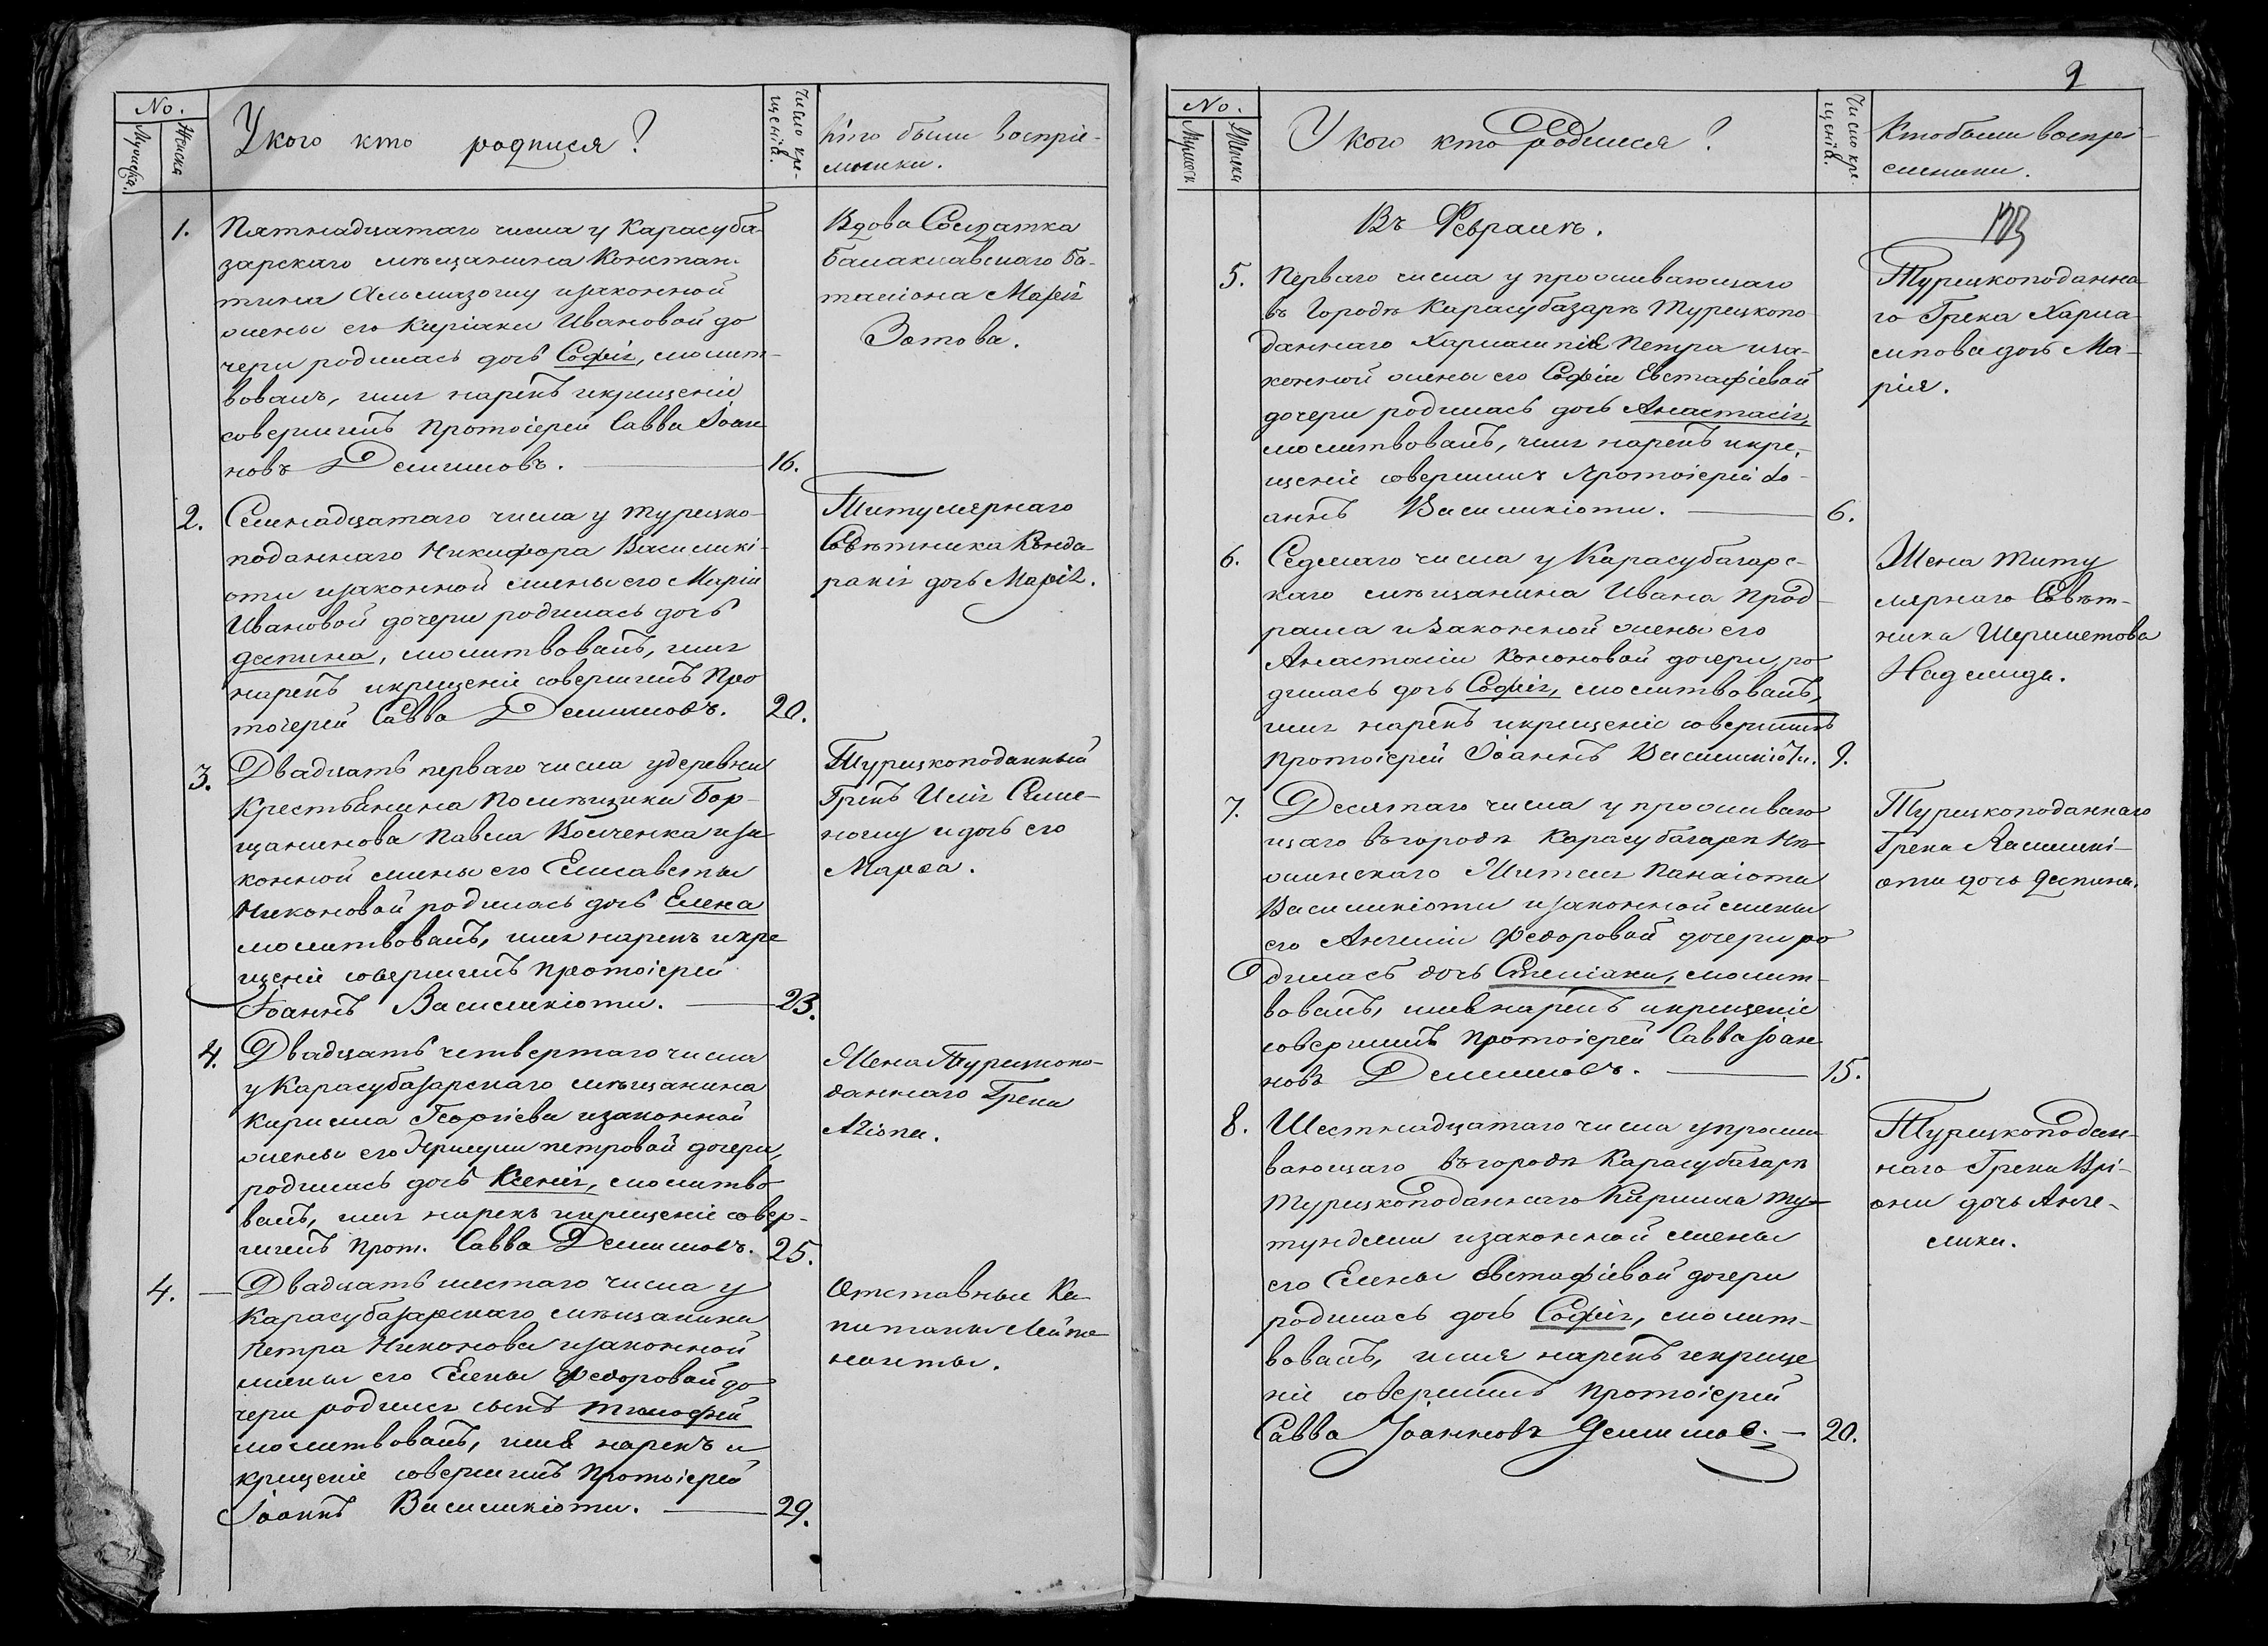 No.
Мужеска.
Женска
У кого кто родился?
Число кре-
щенія.
Кто были воспріе-
мники.
1. Пятнадцатаго числа у Карасуба-
зарскаго мѣщанина Констан-
тина изаконной
жены его Киріаки Ивановой до
чери родилась дочь Софія, молит-
вовалъ, имя нарекъ икрещеніе
совершилъ Протоіерей Савва Іоан
новъ Делимовъ. 16.
Вдова Солдатка
Балаклавскаго Ба-
таліона Марія
Зотова.
2. Семнадцатаго числа у турецко-
поданнаго Никифора Василикі-
оти изаконной жены его Маріи
Ивановой дочери родилась дочь
деспина, молитвовалъ, имя
нарекъ икрещеніе совершилъ Про
тоіерей Савва Делимовъ. 20.
Титулярнаго
Совѣтника Конда-
ракія дочь Марія.
3. Двадцать перваго числа удеревни
Крестьянина Помѣщика Бор-
щанинова Павла иза
конной жены его Елисаветы
Никоновой родилась дочь Елена
молитвовалъ, имя нарекъ икре
щеніе совершилъ протоіерей
Іоаннъ Василикіоти. 23.
Турецкоподанный
Грекъ Илія Симе-
ноглу и дочь его
Марѳа.
4. Двадцать четвертаго числа
у Карасубазарскаго мѣщанина
Кирилла Георгіева изаконной
жены его петровой дочери,
родилась дочь Ксенія, молитво
валъ, имя нарекъ икрещеніе совер-
шилъ прот. Савва Делимовъ. 25.
Жена Турецкопо-
даннаго Грека
4. Двадцать шестаго числа у
Карасубазарскаго мѣщанина
Петра Никонова изаконной
жены его Елены Федоровой до
чери родился сынъ тимофей
молитвовалъ, имя нарекъ и
крещеніе совершилъ протоіерей
Іоаннъ Василикіоти. 29.
Отставные Ка-
питаны Лейте
нанты.
No.
Мужеск
Женска
У кого кто родился?
Число кре-
щенія.
Кто были воспрі-
емники.
Въ Февралѣ.
5. Перваго числа у проживающаго
въ Городѣ Карасубазарѣ Турецкопо-
даннаго Харлампія Петра иза-
конной жены его Софіи Евстафіевой
дочери родилась дочь Анастасія,
молитвовалъ, имя нарекъ икре-
щеніе совершилъ Протоіерей Іо-
аннъ Василикіоти. 6.
Турецкоподанна-
го Грека Харла-
мпова дочь Ма-
рія.
6. Седмаго числа у Карасубазарс-
каго мѣщанина Ивана Прод-
рама изаконной жены его
Анастасіи Кононовой дочери, ро
дилась дочь Софія, молитвовалъ,
имя нарекъ икрещеніе совершилъ
протоіерей Іоаннъ Василикіоти. 9.
Жена Титу
лярнаго Совѣт-
ника Шереметова
Надежда.
7. Десятаго числа у проживаю
щаго въгородѣ Карасубазарѣ Нѣ-
жинскаго Жителя Панаіота
Василикіоти изаконной жены
его Ангеліи Федоровой дочери ро
дилась дочь Стиліаки, молит-
вовалъ, имя нарекъ икрещеніе
совершилъ протоіерей Савва Іоан
новъ Делимовъ. 15.
Турецкоподаннаго
Грека
оти дочь деспина.
8. Шестнадцатаго числа упрожи
вающаго въгородѣ Карасубазарѣ
турецкоподаннаго Кирилла Ту-
тунджи изаконной жены
его Елены Евстафіевой дочери
родилась дочь Софія, молит-
вовалъ, имя нарекъ икреще
ніе совершилъ протоіерей
Савва Іоанновъ Делимовъ. 20.
Турецкоподан-
наго Грека Врі-
они дочь Анге-
лики.